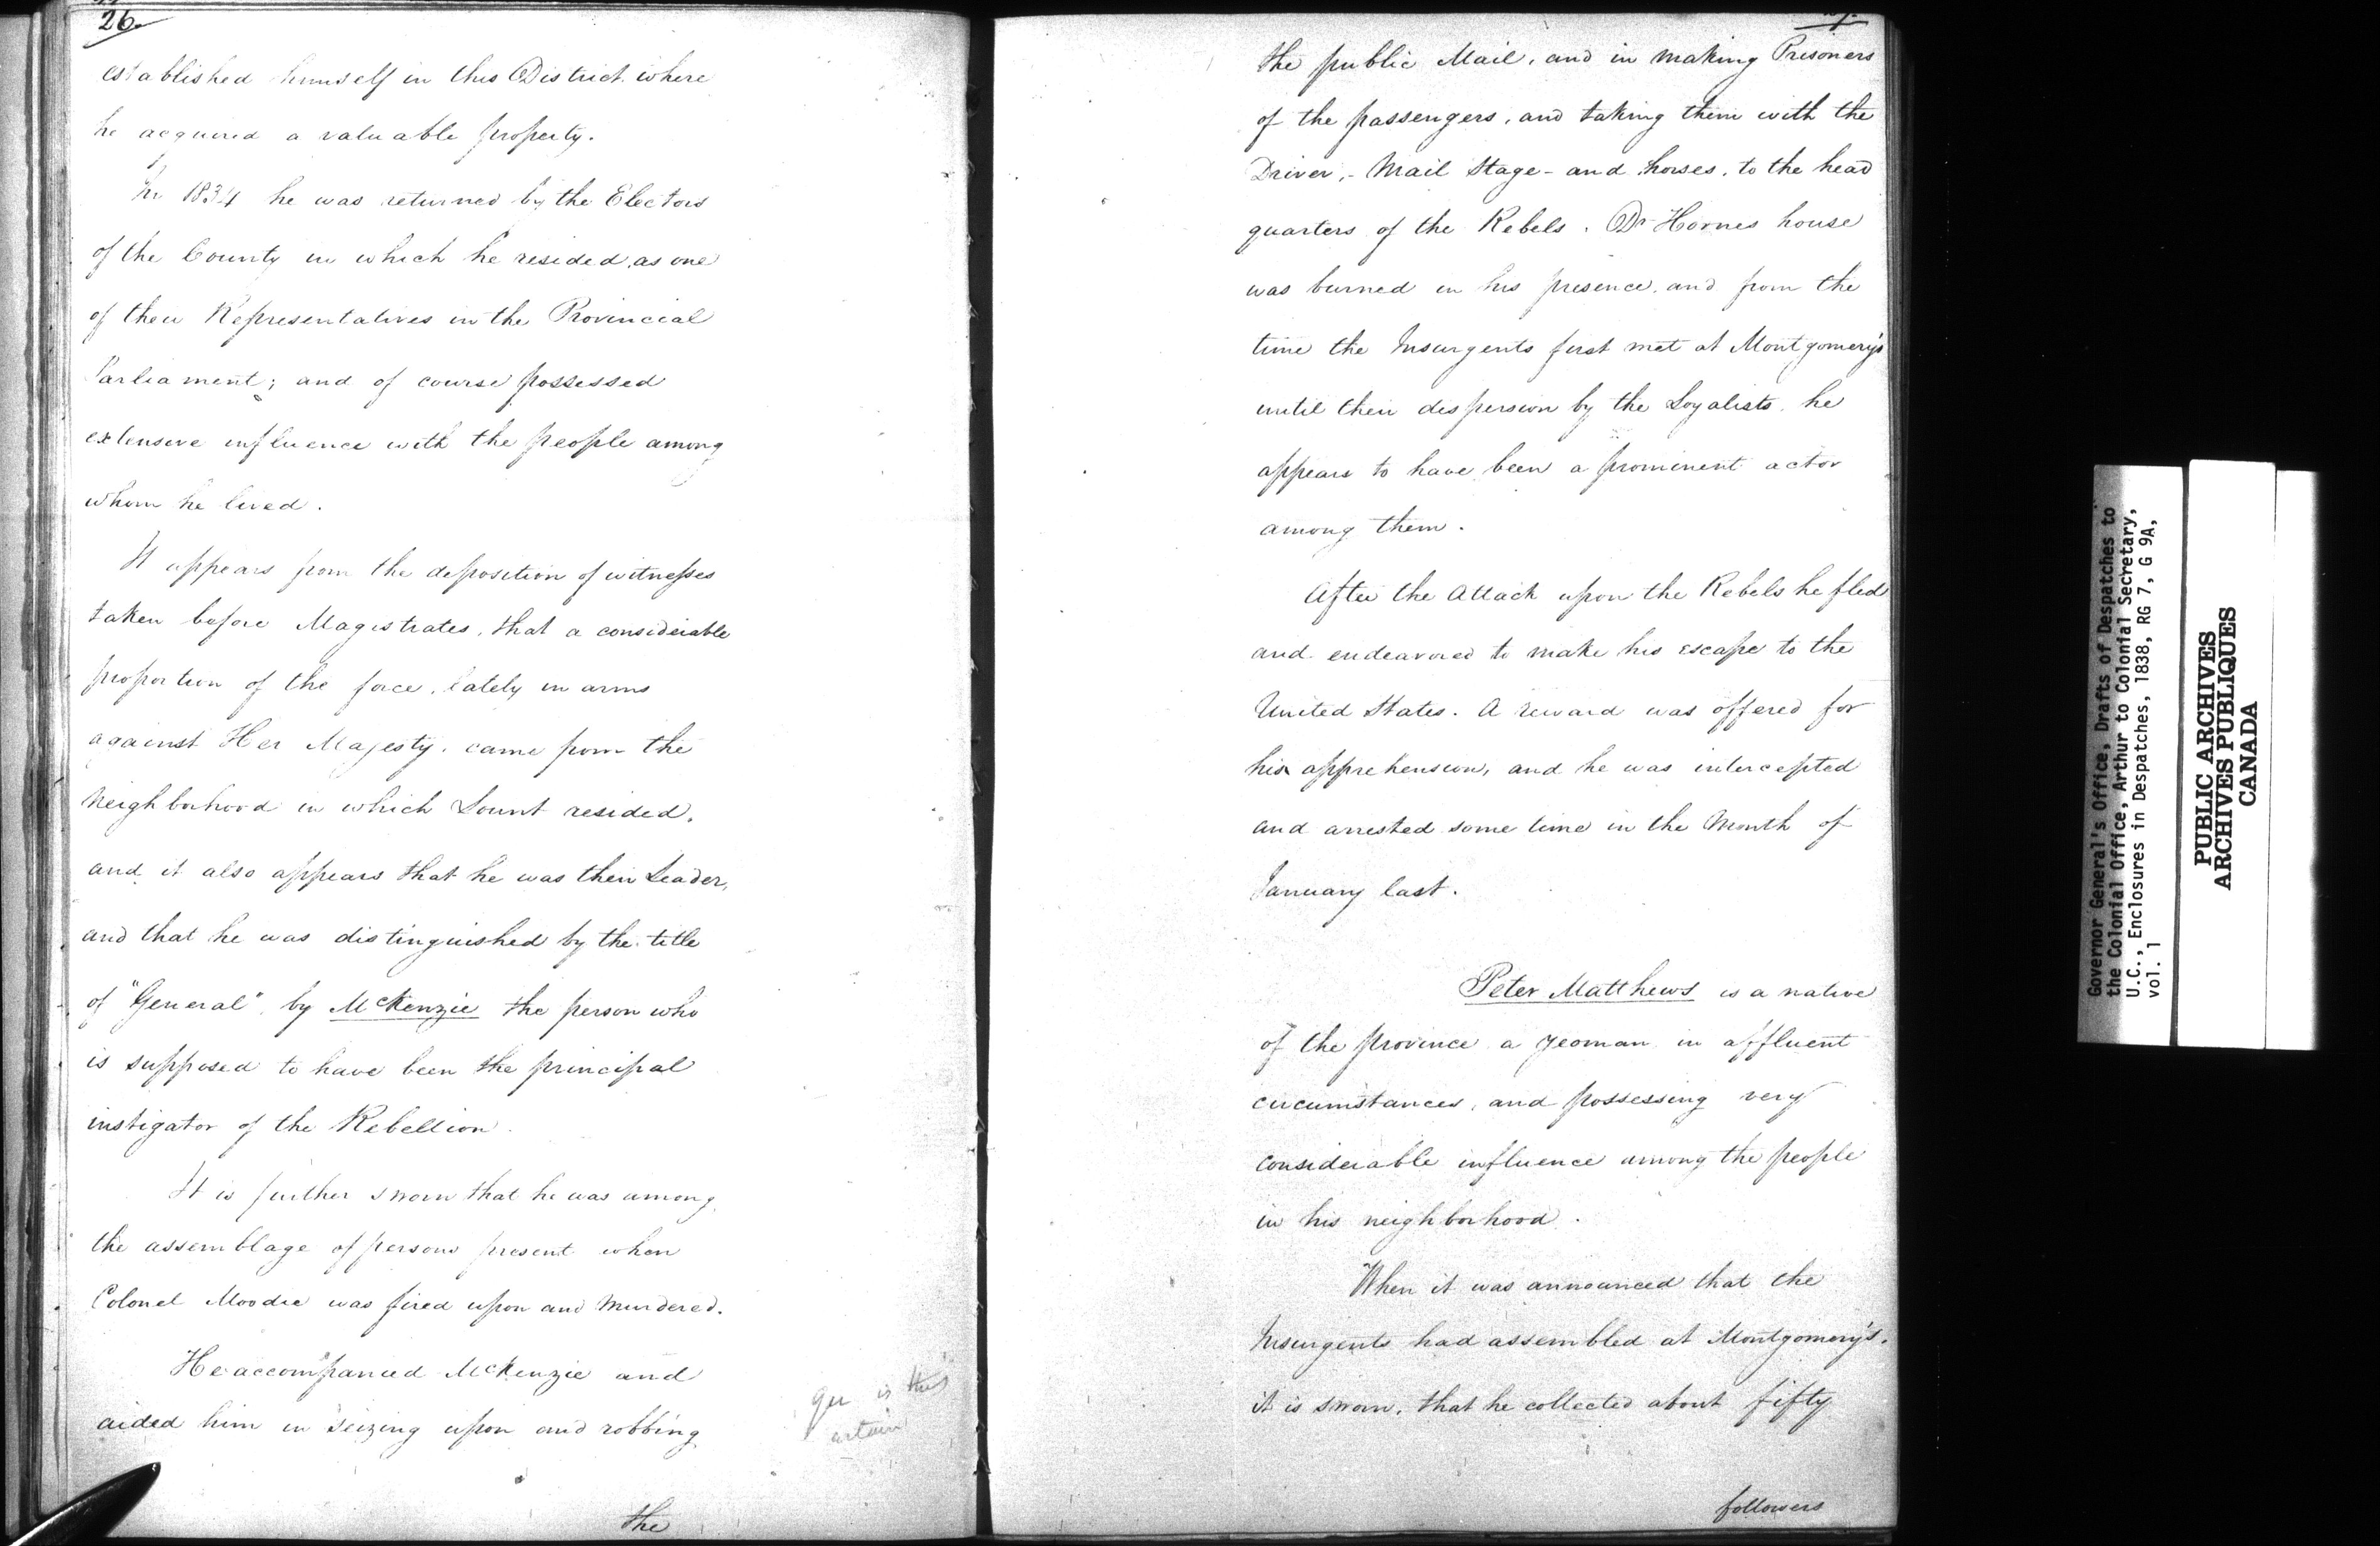 26.
established himself in this District where
he acquired a valuable property.
In 1834 he was returned by the Electors
of the County in which he resided, as one
of their Representatives in the Provincial
Parliament; and of course possessed
extensive influence with the people among
whom he lived.
It appears from the deposition of witnesses
taken before Magistrates, that a considerable
proportion of the force, lately in arms
against Her Majesty, came from the
Neighborhood in which Lount resided,
and it also appears that he was their Leader,
and that he was distinguished by the title
of "General", by McKenzie the person who
is supposed to have been the principal
instigator of the Rebellion.
It is further sworn that he was among
the assemblage of persons present when
Colonel Moodie was fired upon and murdered.
He accompanied McKenzie and
aided him in seizing upon and robbing
is this
the
the public Mail, and in making Prisoners
of the passengers, and taking them with the
Driver, - Mail Stage - and horses, to the head
quarters of the Rebels. Dr Hornes house
was burned in his presence, and from the
time the Insurgents first met at Montgomery's
until their dispersion by the Loyalists, he
appears to have been a prominent actor
among them.
After the Attack upon the Rebels he fled
and endeavored to make his escape to the
United States. A reward was offered for
his apprehension, and he was intercepted
and arrested some time in the Month of
January last.
Peter Matthews is a native
of the province a yeoman in affluent
circumstances, and possessing very
considerable influence among the people
in his neighborhood.
When it was announced that the
Insurgents had assembled at Montgomery's,
it is sworn, that he collected about fifty
followers
Governor General's Office, Drafts of Despatches to
the Colonial Office, Arthur to Colonial Secretary,
U.C., Enclosures in Despatches, 1838, RG 7, G 9A,
vol. 1
PUBLIC ARCHIVES
ARCHIVES PUBLIQUES
CANADA